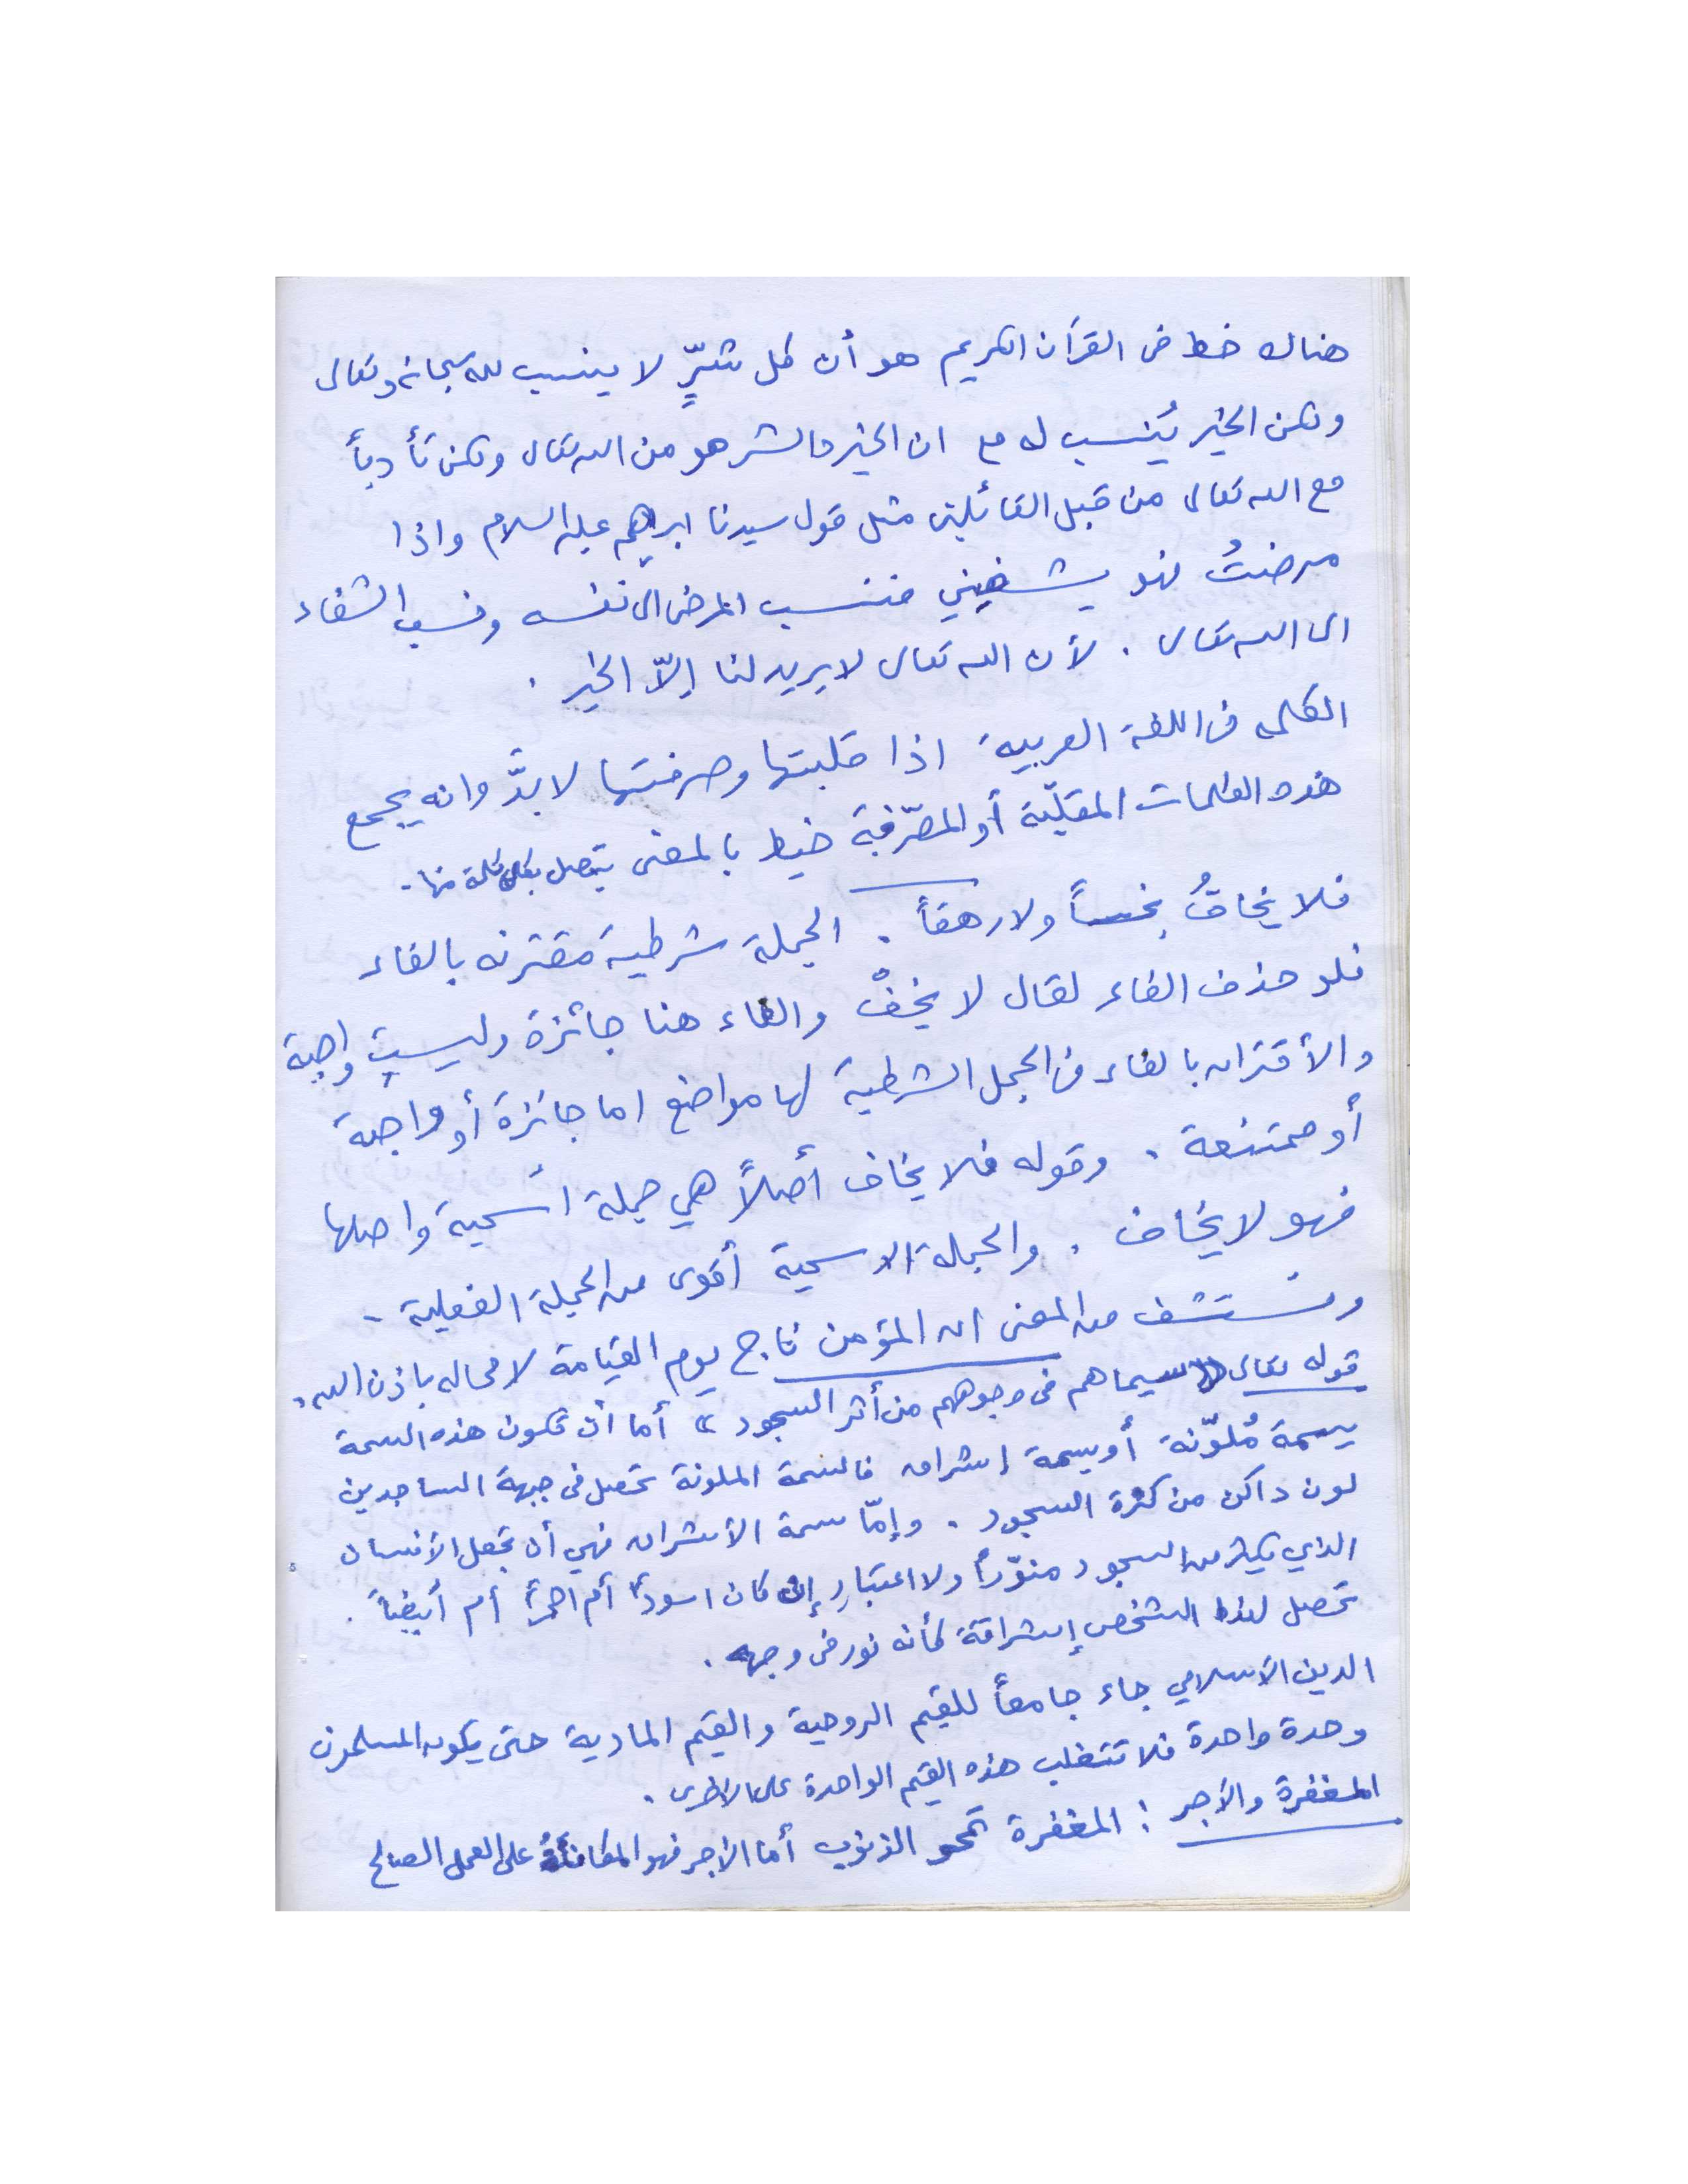 هناك خط في القرآن الكريم هو أن كل شرٍّ لا ينسب لله سبحانه وتعالى
ولكن الخير يُنسب له مع ان الخير والشر هو من الله تعالى ولكن تأدباً
مع الله تعالى من قبل القائلين مثل قول سيدنا ابراهيم عليه السلام واذا
مرضتُ فهو يشفيني فنسب المرض الى نفسه ونسب الشفاء
الى الله تعالى . لأن الله تعالى لا يريد لنا إلاّ الخير .
الكلمه في اللغة العربية اذا قلبتها وصرفتها لا بدَّ وانه يجمع
هذه الكلمات المقلّبة أو المصرّفة خيط بالمعنى يتصل بكل كلمة منها .
فلا يخافُ بخساً ولا رهقاً . الجملة شرطية مقترنه بالفاء
فلو حذف الفاء لقال لا يخفْ والفاء هنا جائزة وليست واجبة
والأقتران بالفاء في الجمل الشرطية لها مواضع اما جائزة أو واجبة
أو ممتنعة . وقوله فلا يخاف أصلاً هي جملة اسمية واصلها
فهو لا يخاف . والجملة الاسمية أقوى من الجملة الفعلية .
ونستشف من المعنى ان المؤمن ناج يوم القيامة لا محاله باذن الله .
قوله تعالى « سيماهم في وجوههم من أثر السجود » أما أن تكون هذه السمة
سمة مُلوّنة أو سمة إشراق فالسمة الملونة تحصل في جبهة الساجدين
لون داكن من كثرة السجود . وإمّا سمة الأشراق فهي أن تجعل الأنسان
الذي يكثر من السجود منوّراً ولا اعتبار إن كان اسوداً أم احمراً أم أبيضاً .
تحصل لهذا الشخص إشراقة كأنه نور في وجهه .
الدين الأسلامي جاء جامعاً للقيم الروحية والقيم المادية حتى يكون المسلمون
وحدة واحدة فلا تتغلب هذه القيم الواحدة على الأخرى .
المغفرة والأجر : المغفرة تمحو الذنوب أما الأجر فهو المكافأة على العمل الصالح